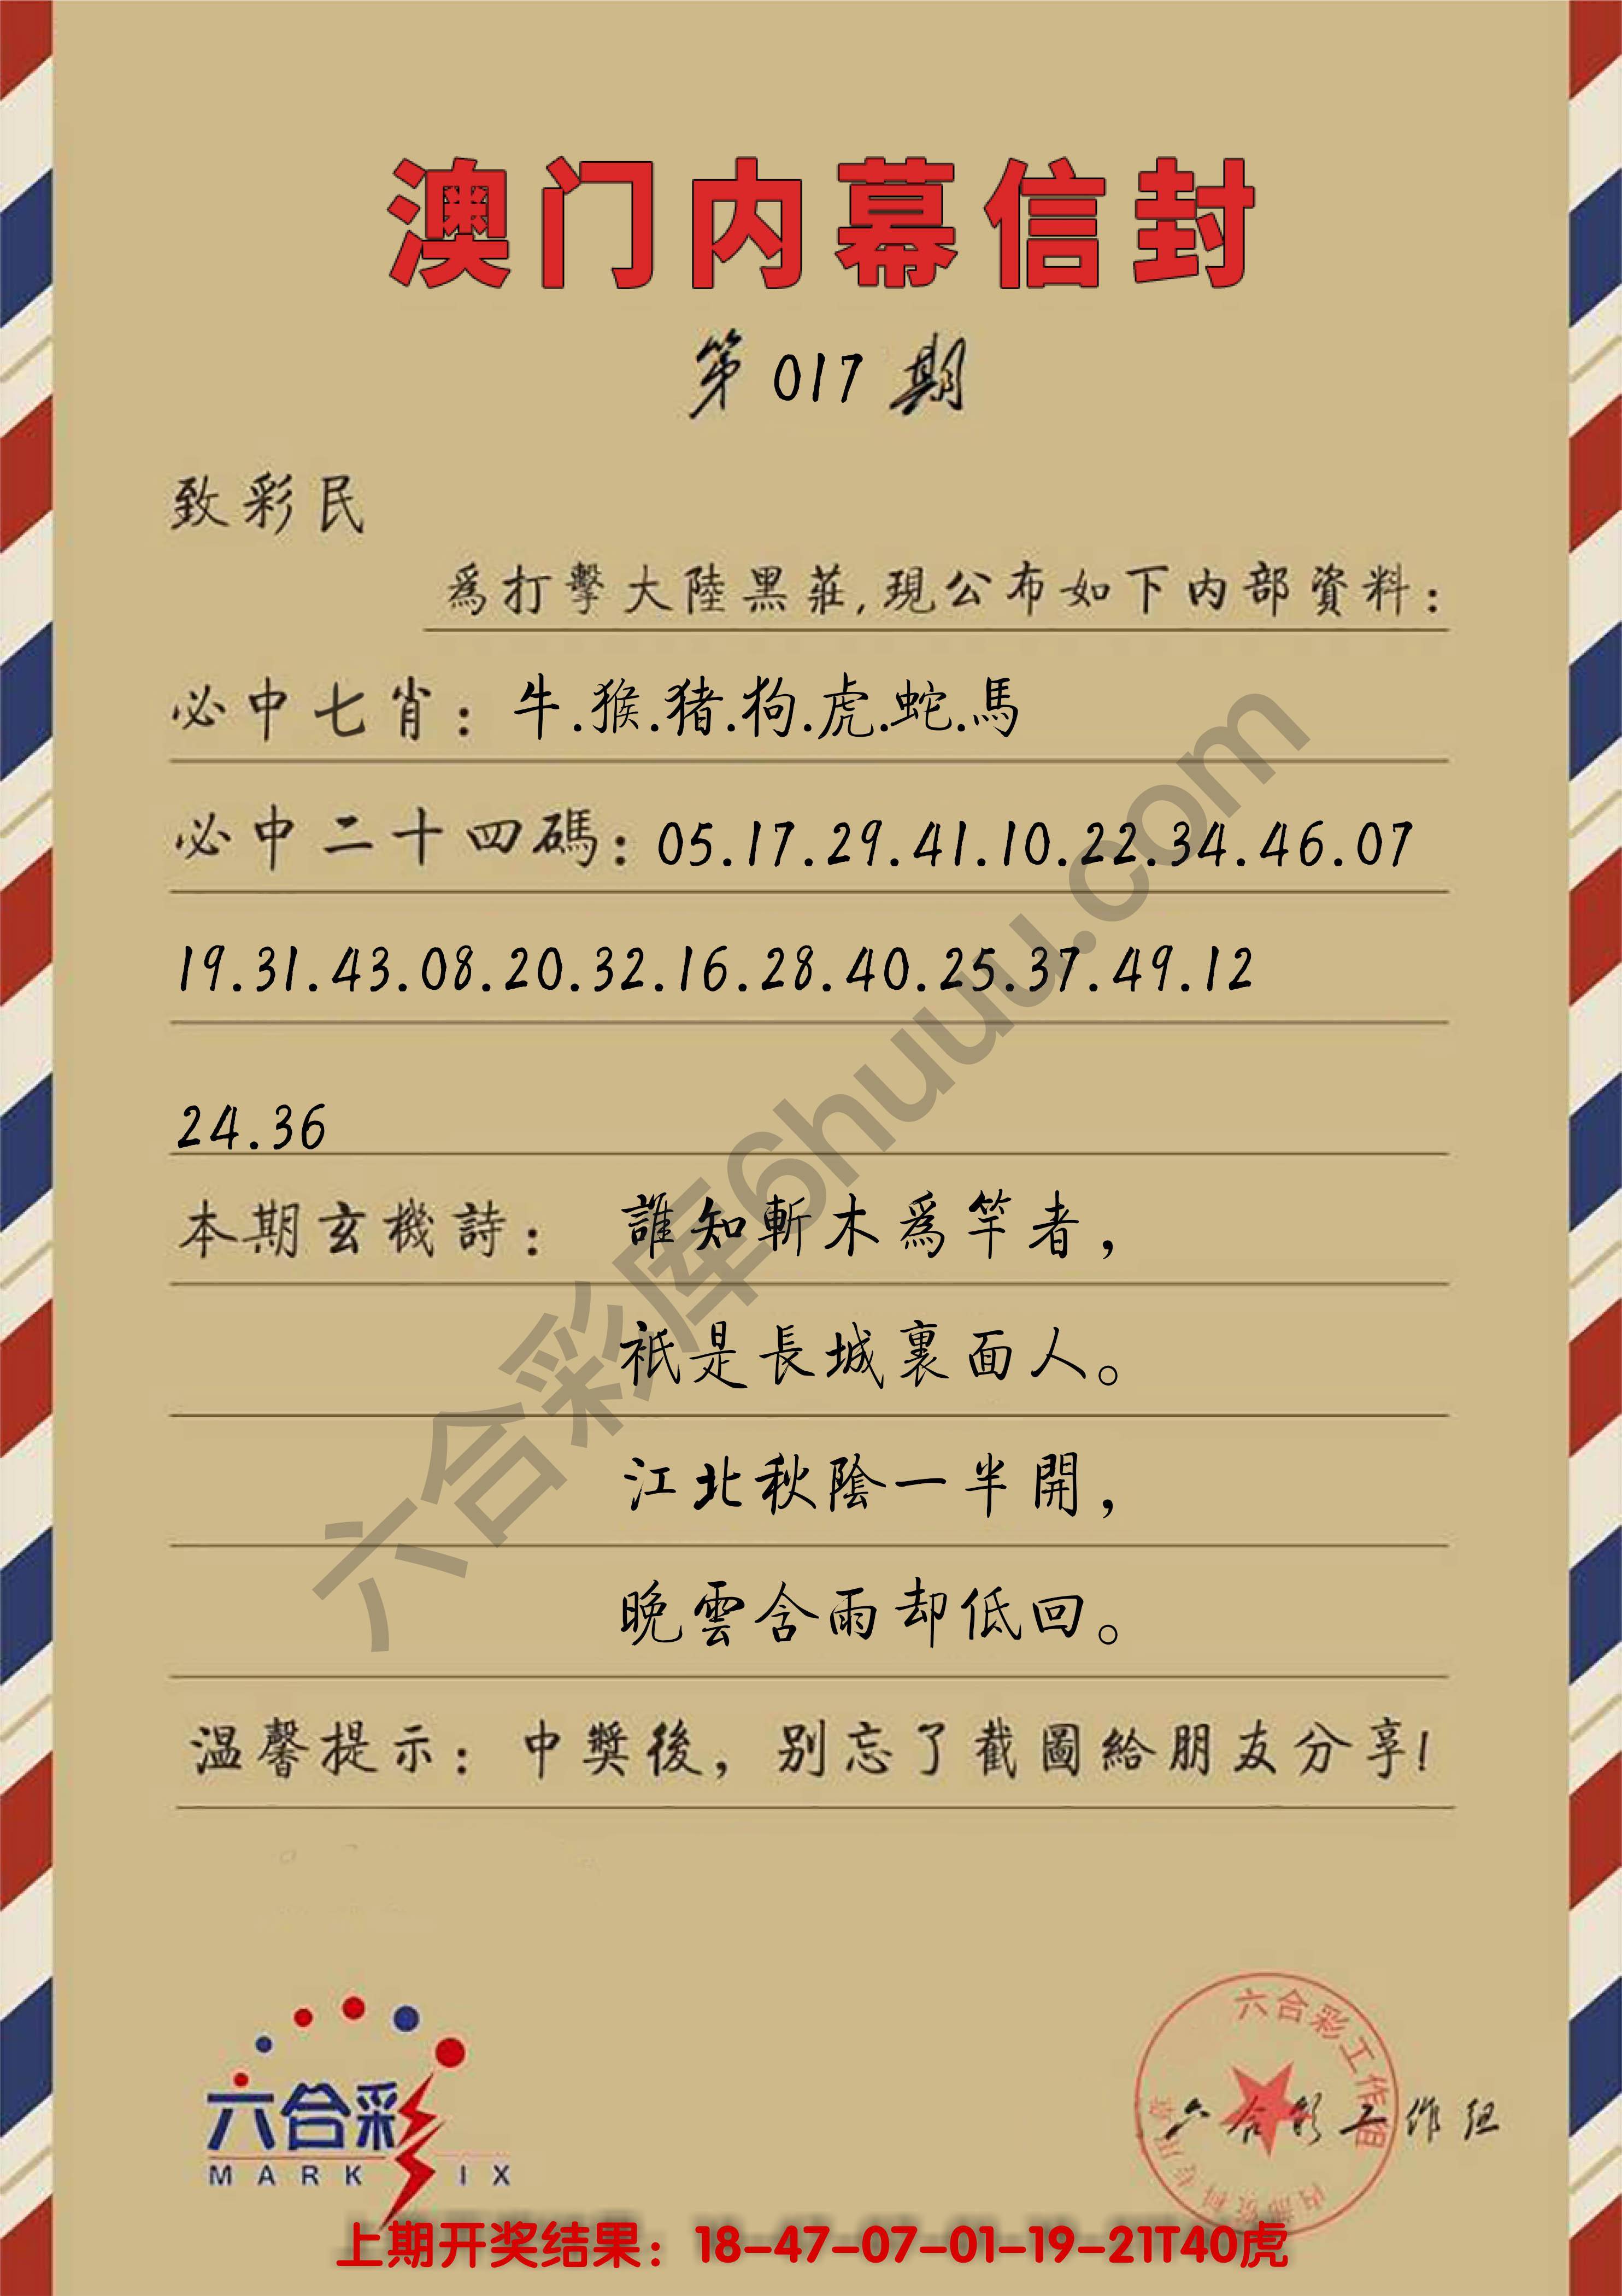 澳门内幕信封
第 017 期
致彩民
爲打擊大陸黑莊,現公布如下内部資料:
必中七肖: 牛.猴.猪.狗.虎.蛇.馬
必中二十四碼: 05.17.29.41.10.22.34.46.07
19.31.43.08.20.32.16.28.40.25.37.49.12
24.36
本期玄機詩: 誰知斬木爲竿者,
祇是長城裏面人。
江北秋陰一半開,
晚雲含雨却低回。
温馨提示: 中獎後, 别忘了截圖給朋友分享!
六合彩库6huuu.com
六合彩
MARK IX
六合彩工作组
六合彩工作组
上期开奖结果: 18-47-07-01-19-21T40虎